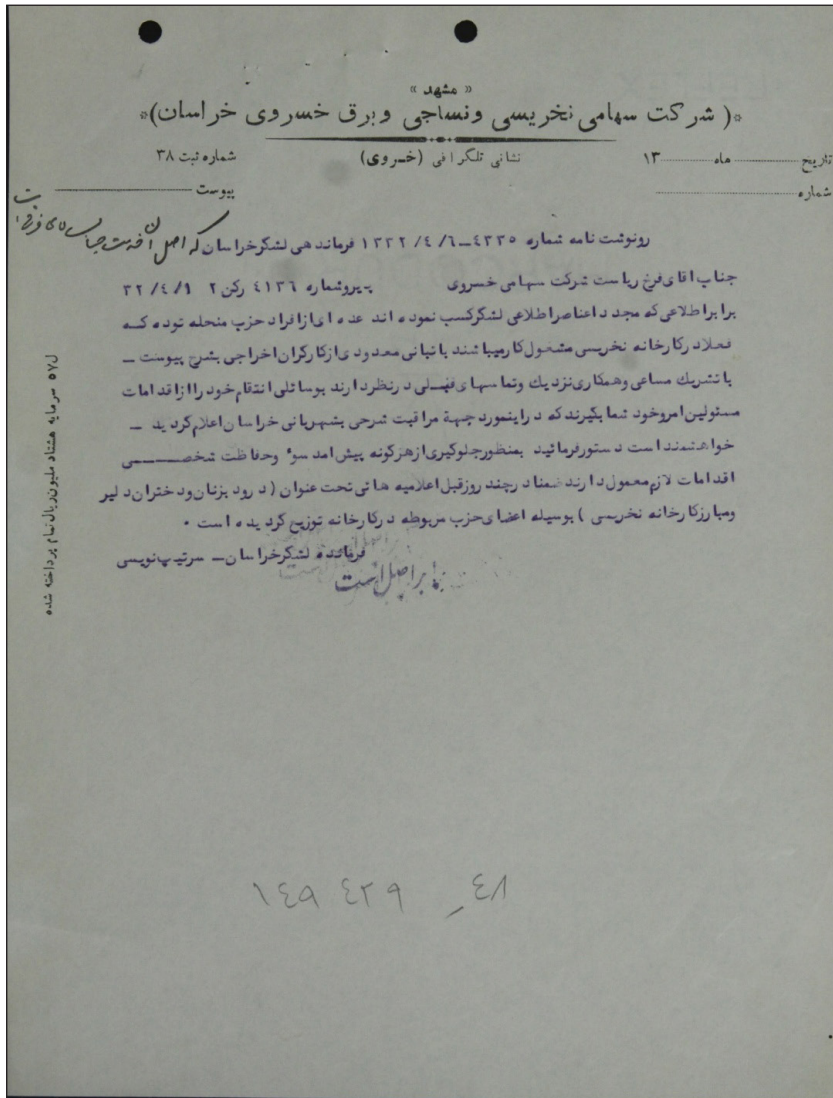 « مشهد »
*( شرکت سهامی نخریسی ونساجی وبرق خسروی خراسان)*
تاریخ ماه ۱۳
نشانی تلگرافی (خسروی)
شماره ثبت ۳۸
شماره
پیوست
که اصل آن خدمت جناب آقای فرخ
رونوشت نامه شماره ۴۳۳۵ـ۶/ ۴/ ۱۳۳۲ فرماندهی لشکرخراسان
جناب اقای فرخ ریاست شرکت سهامی خسروی پیروشماره ۴۱۳۶ رکن ۲ ۱/ ۴/ ۳۲
برابراطلاعی که مجدد اعناصراطلاعی لشکرکسب نموده اند عده ای ازافراد حزب منحله توده که
فعلادرکارخانه نخریسی مشغول کارمیباشند باتبانی معدودی ازکارگران اخراجی بشرح پیوست ـ
باتشریک مساعی وهمکاری نزدیک وتماسهای فهملی درنظردارند بوسائلی انتقام خود راازاقدامات
مسئولین امروخود شما بگیرند که دراینمورد جهة مراقبت شرحی بشهربانی خراسان اعلام گردید ـ
خواهشمند است دستورفرمائید بمنظورجلوگیری ازهرگونه پیش امد سوء وحفاظت شخصـــی
اقدامات لازم معمول دارند ضمنا درچند روزقبل اعلامیه هائی تحت عنوان ( درود بزنان ودختران دلیر
ومبارزکارخانه نخریسی ) بوسیله اعضای حزب مربوطه درکارخانه توزیع گردیده است .
فرمانده لشکرخراسان ـ سرتیپ نویسی
برابر اصل است
ل۵۷ سرمایه هشتاد ملیون ریال تمام پرداخته شده
۱۴۹ ۴۲۹ _ ۴۸